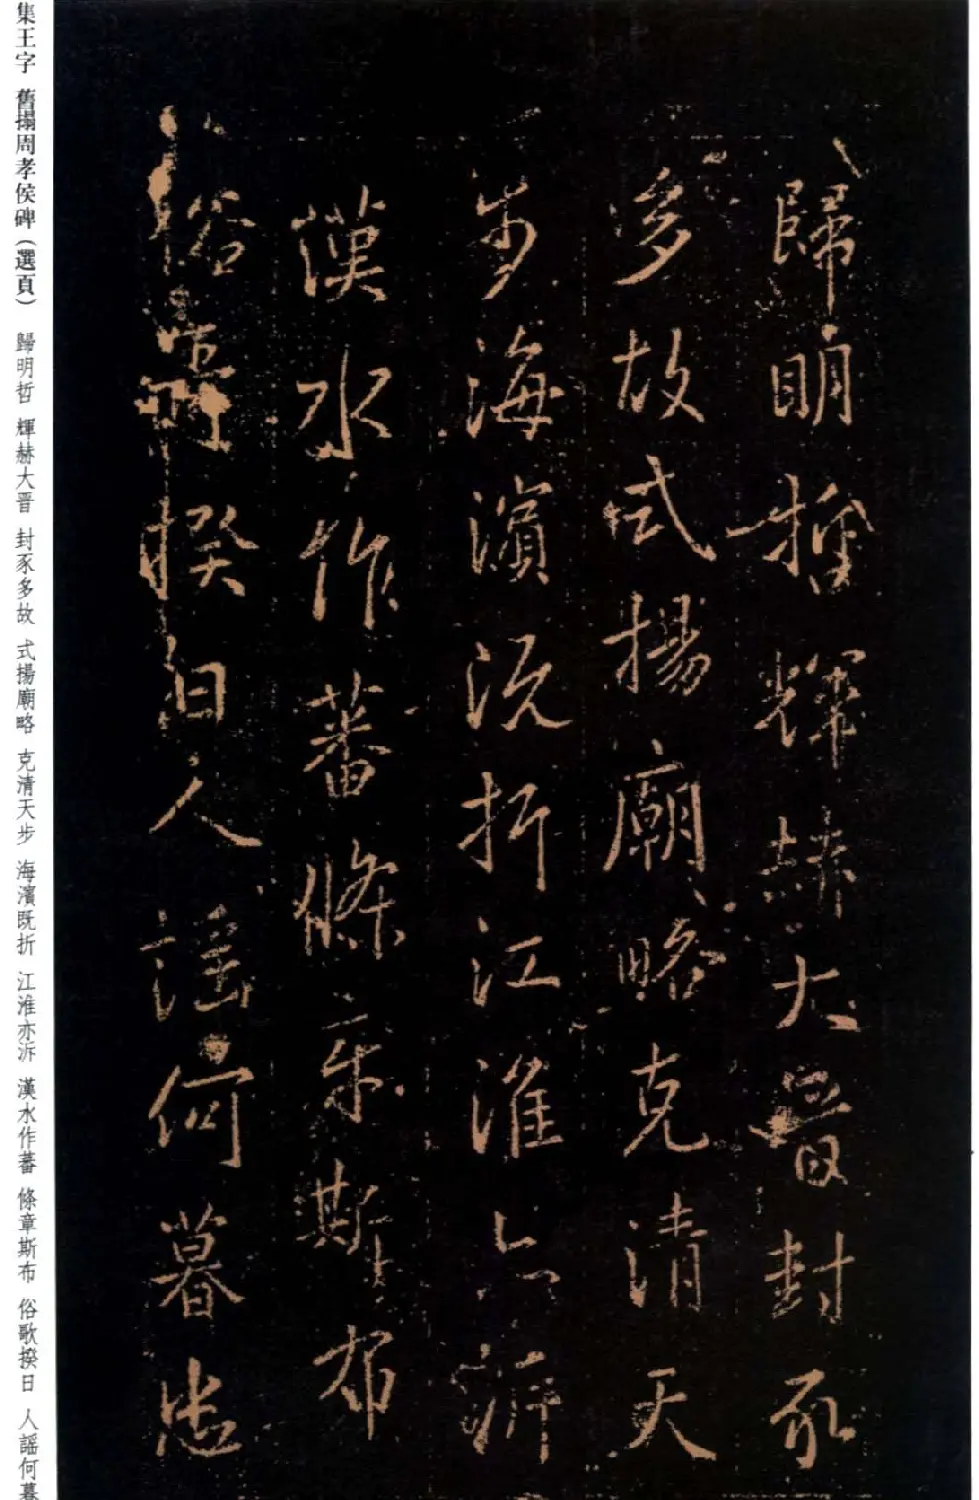 歸明哲輝赫大晉封豕
多故式揚廟略克清天
步海濱既折江淮亦泝
漢水作蕃條章斯布
俗歌揆日人謡何暮
集王字 舊搨周孝侯碑(選頁) 歸明哲 輝赫大晉 封豕多故 式揚廟略 克清天步 海濱既折 江淮亦泝 漢水作蕃 條章斯布 俗歌揆日 人謡何暮